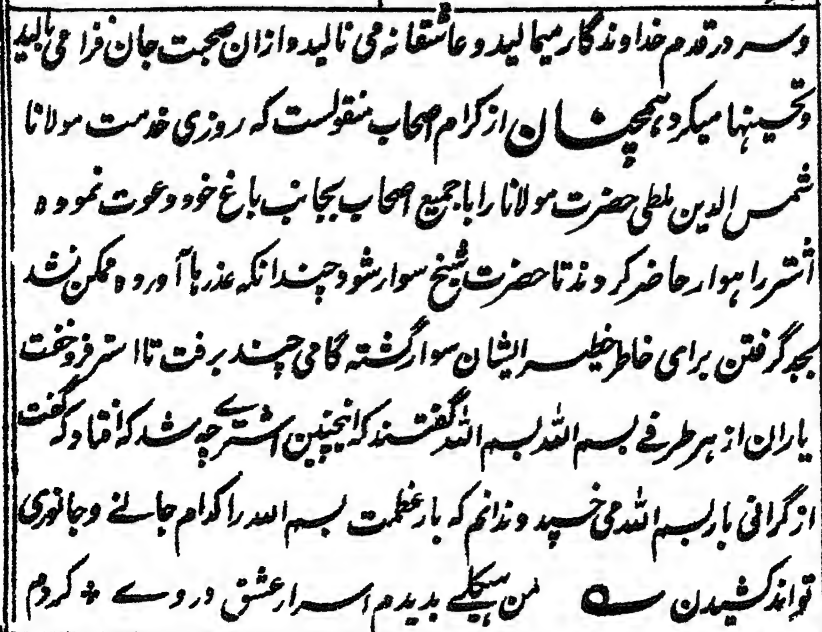 وسر در قدم خداوندگار میمالید و عاشقانه می نالید و ازان صحبت جان فزا می بالید
و تحسینها میکرد همچنان از کرام اصحاب منقولست که روزی خدمت مولانا
شمس الدین ملطی حضرت مولانا را با جمیع اصحاب بجانب باغ خود دعوت نموده
اشتر راهوار حاضر کردند تا حضرت شیخ سوار شود چندانکه عذرها آورده ممکن نشد
بجد گرفتن برای خاطر خطیر ایشان سوار گشته گامی چند برفت تا استر فروخفت
یاران از هر طرفے بسم الله بسم الله گفتند که اینچنین اشترے چه شد که افتاد گفت
از گرانی بار بسم الله می خسپد و ندانم که بار عظمت بسم الله را کدام جانے و جانوری
تواند کشیدن ے من هیکلے بدیدم اسرار عشق در وے * کردم